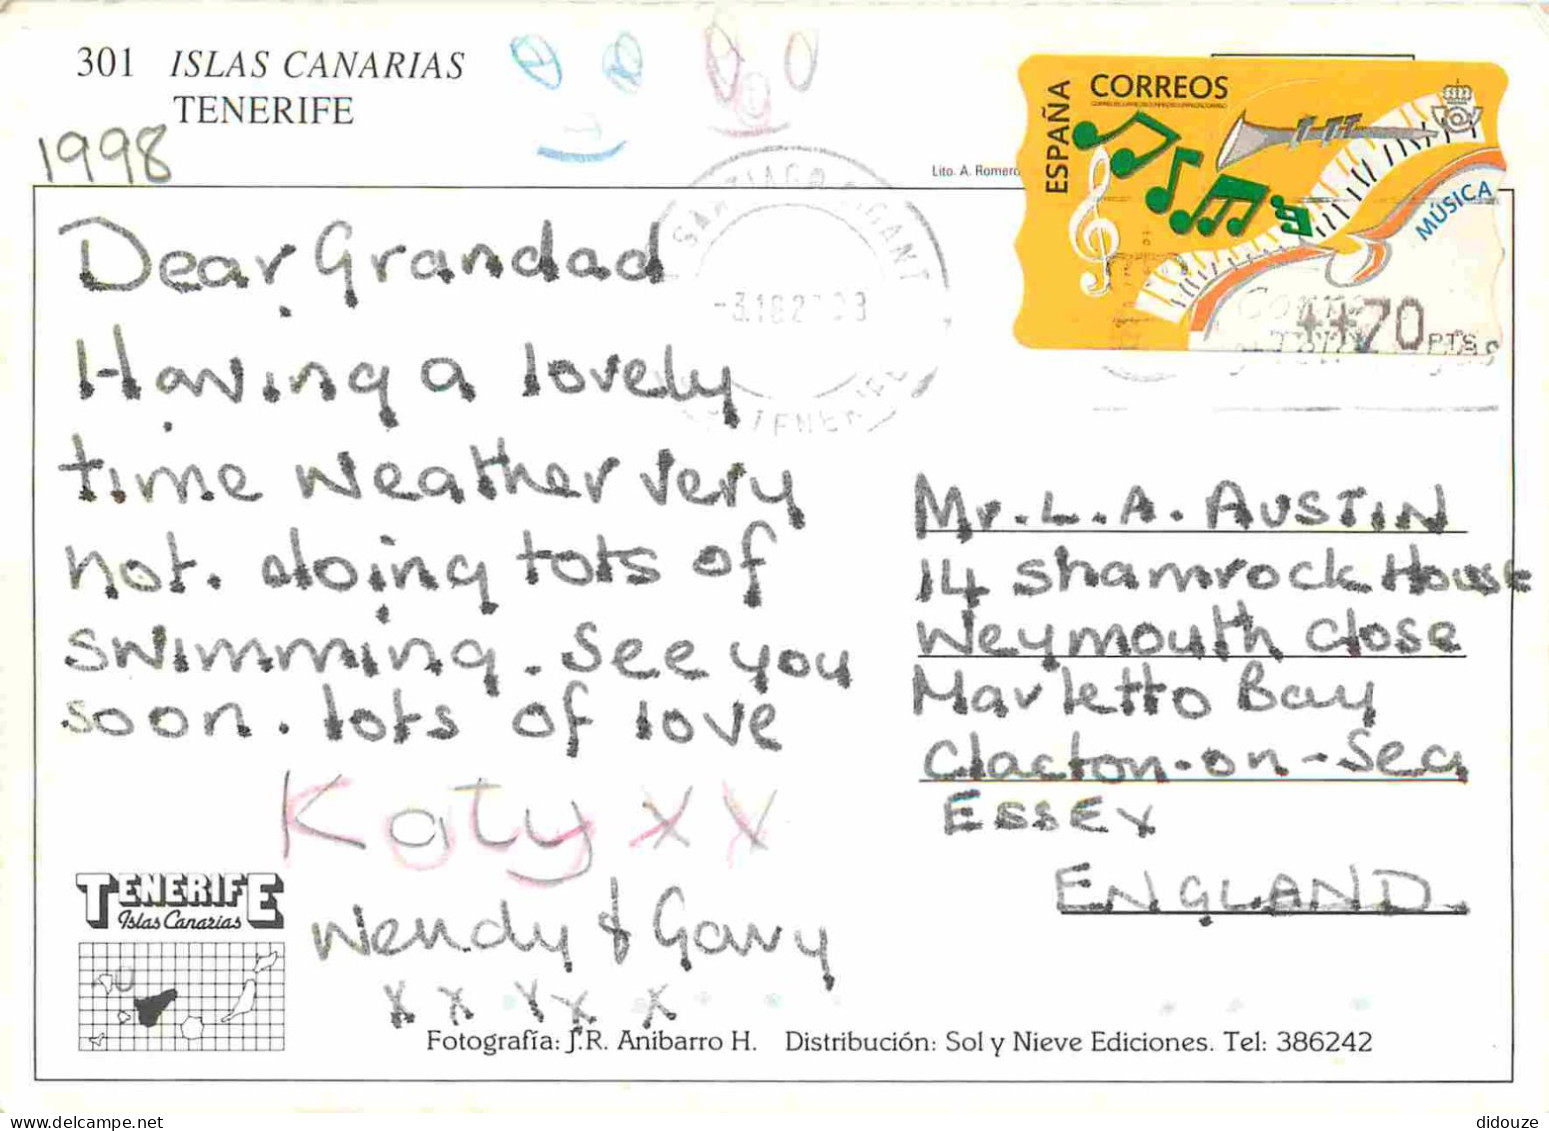 301 ISLAS CANARIAS
TENERIFE
1998
Lito. A. Romero
ESPAÑA
CORREOS
MÚSICA
70 PTS
Dear Grandad
Having a lovely
time weather very
hot. doing lots of
swimming. See you
soon. lots of love
Katy x x
Wendy & Gary
x x x x x
Mr. L. A. AUSTIN
14 Shamrock House
Weymouth Close
Marletto Bay
Clacton-on-Sea
ESSEX
ENGLAND.
TENERIFE
Islas Canarias
Fotografía: J.R. Anibarro H. Distribución: Sol y Nieve Ediciones. Tel: 386242
didouze